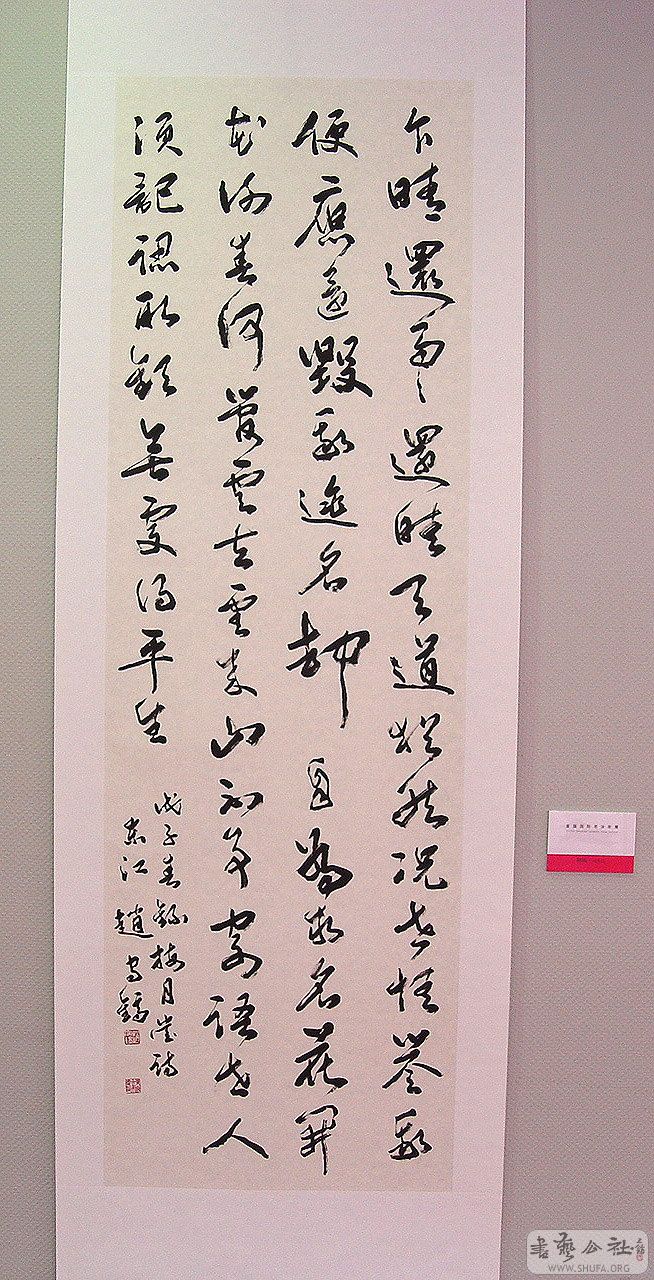 乍晴還雨〻還晴天道猶然況世情譽我
便應還毀我逃名却自為求名花開
花謝春何管雲去雲來山不爭寄語世人
須記認取歡無處得平生
戊子春錄梅月堂詩
東江 趙守鎬
書藝公社
WWW.SHUFA.ORG